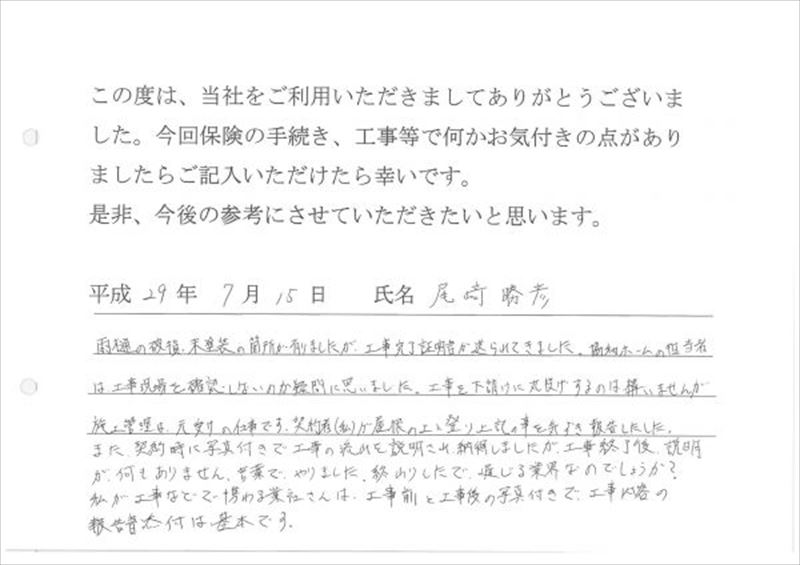 この度は、当社をご利用いただきましてありがとうございま
した。今回保険の手続き、工事等で何かお気付きの点があり
ましたらご記入いただけたら幸いです。
是非、今後の参考にさせていただきたいと思います。
平成 29 年 7 月 15 日 氏名 尾崎 勝彦
雨樋の破損、未塗装の箇所が有りましたが、工事完了証明書が送られてきました。協和ホームの担当者
は工事現場を確認しないのか疑問に思いました。工事を下請けに丸投げするのは構いませんが
施工管理は、元受けの仕事です。契約者(私)が屋根の上と登り上記の事を気づき報告したした。
また、契約時に写真付きで工事の流れを説明され納得しましたが、工事終了後、説明
が、何もありません、言葉で、やりました、終わりしたで、通じる業界なのでしょうか?
私が工事などで携わる業社さんは、工事前と工事後の写真付きで、工事内容の
報告書添付は基本です。